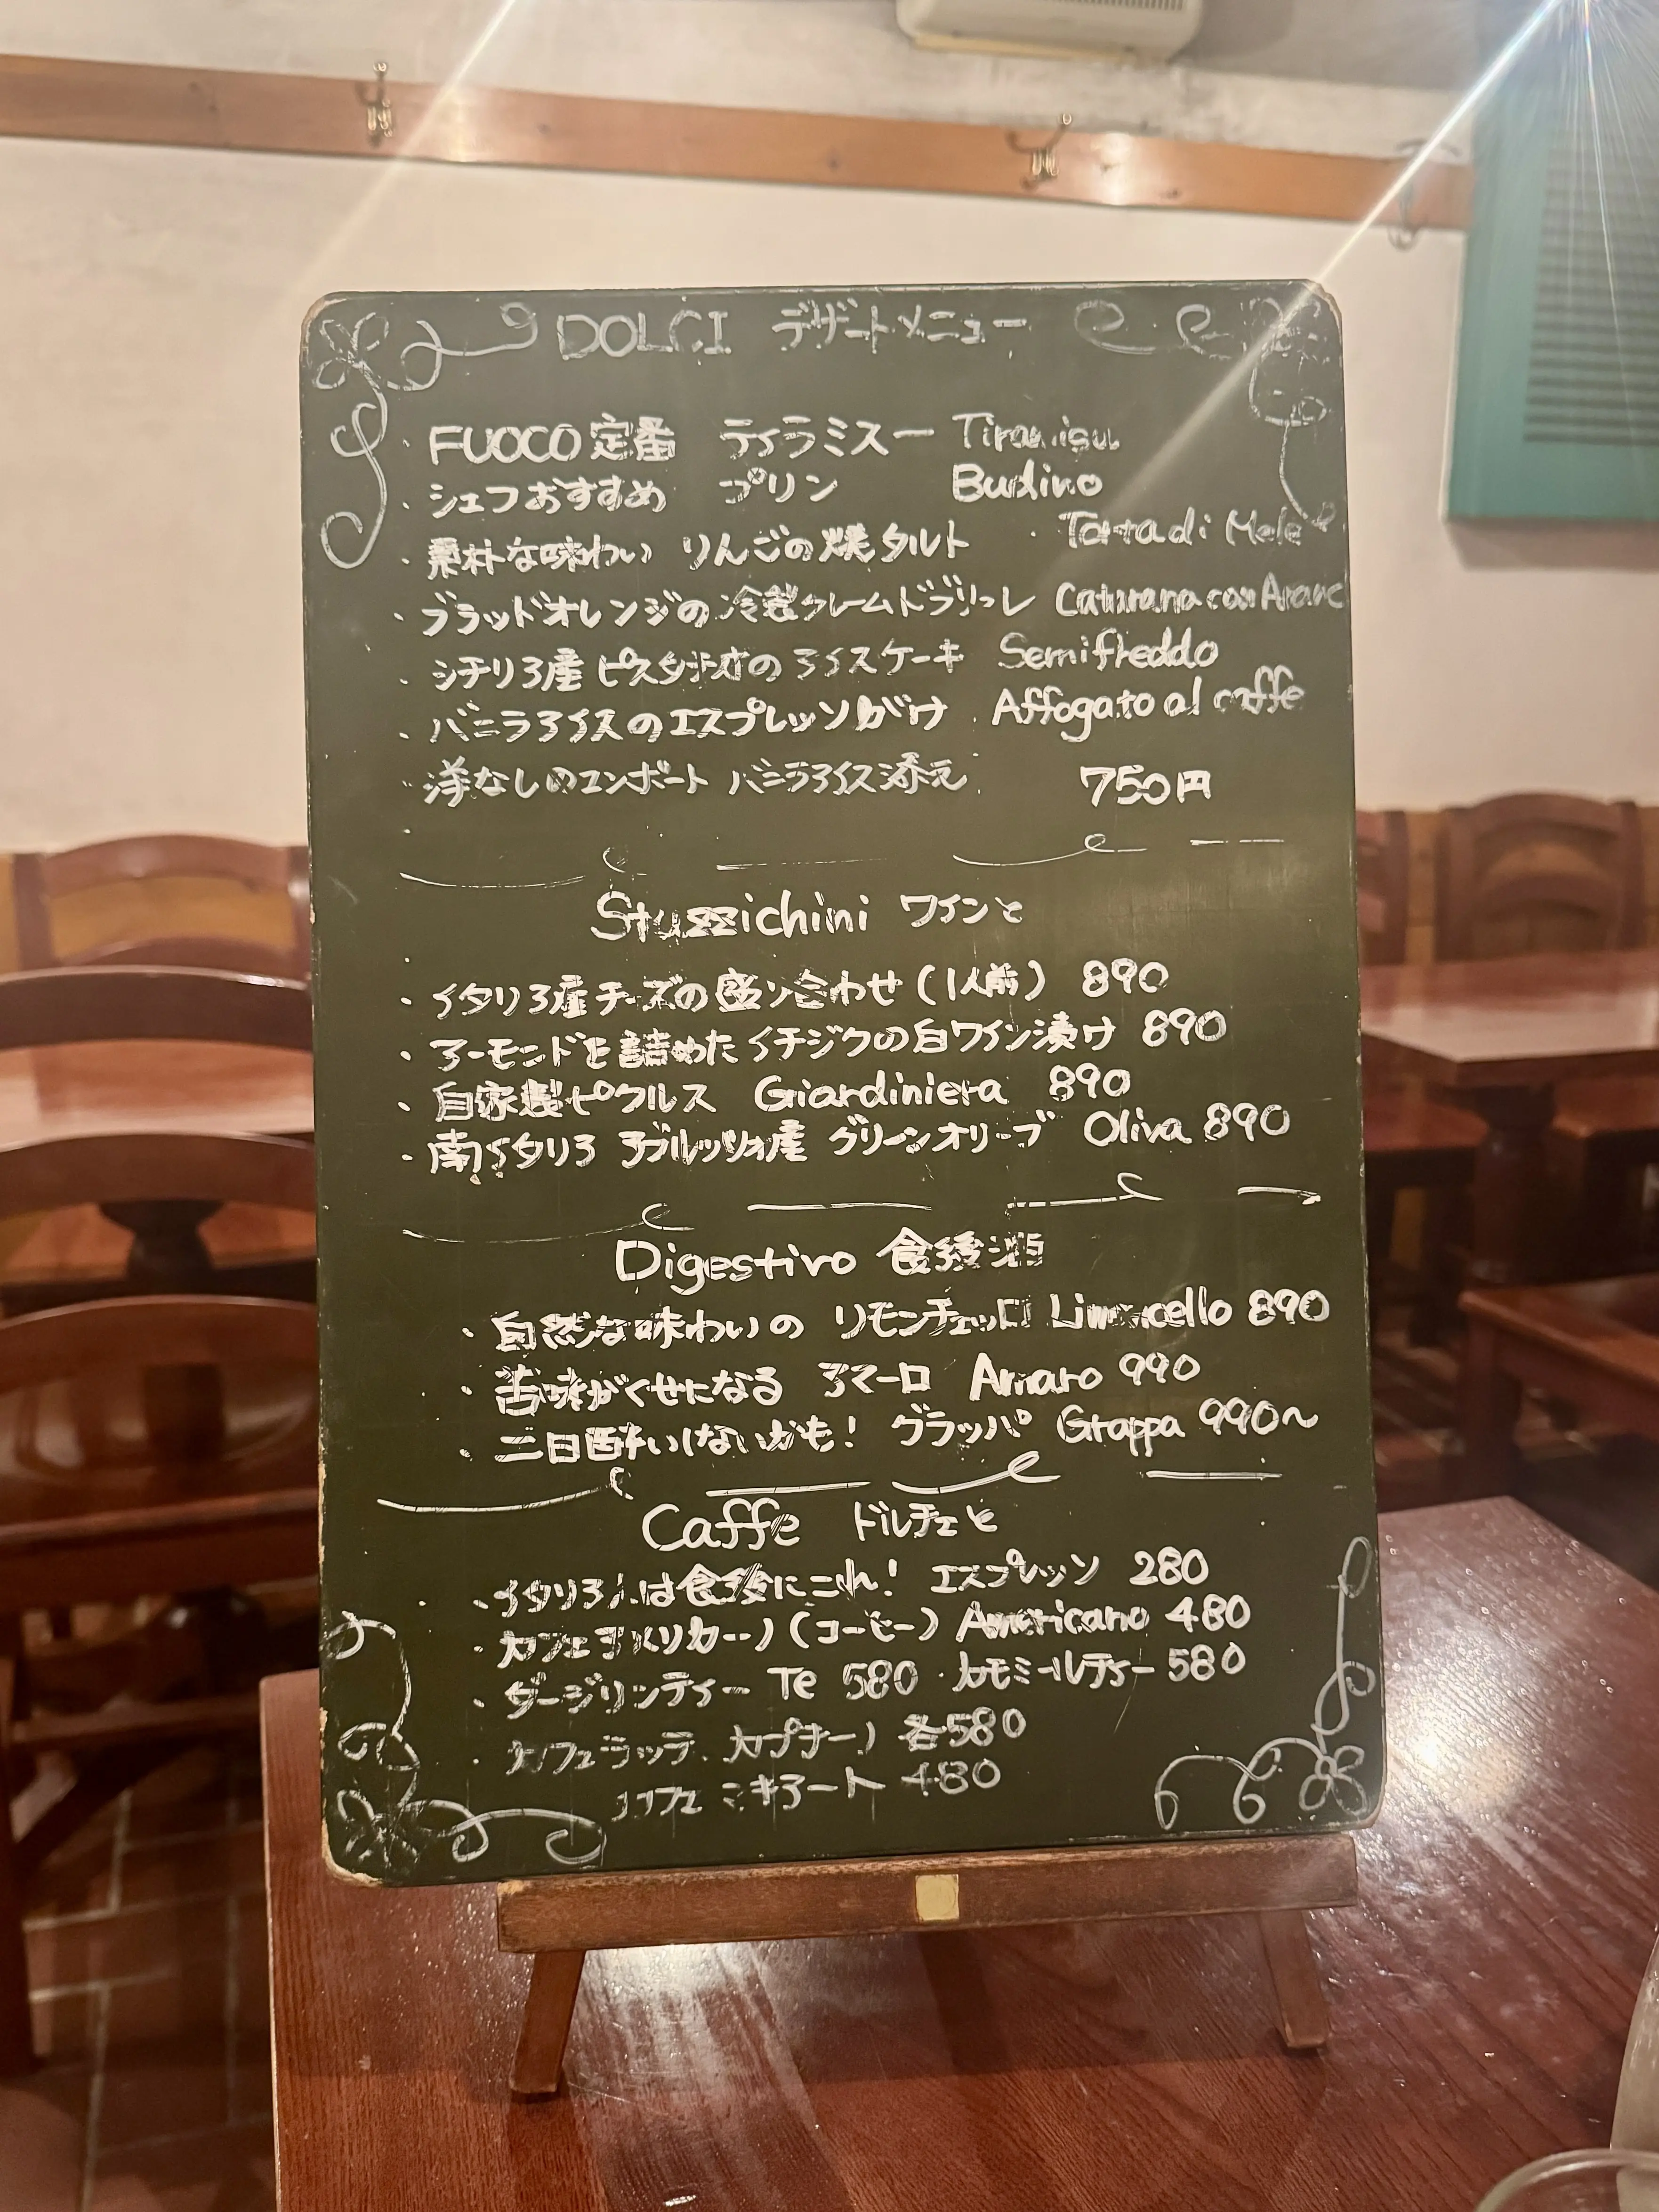 DOLCI デザートメニュー
・FUOCO定番 ティラミスー Tiramisu
・シェフおすすめ プリン Budino
・素朴な味わい りんごの焼タルト ・Torta di Mele
・ブラッドオレンジの冷製クレームドブリュレ Catarana con Aranc
・シチリア産 ピスタチオのアイスケーキ Semifreddo
・バニラアイスのエスプレッソがけ Affogato al caffe
・洋なしのコンポート バニラアイス添え 750円
Stuzzichini ワインと
・イタリア産チーズの盛り合わせ(1人前) 890
・アーモンドを詰めたイチジクの白ワイン漬け 890
・自家製ピクルス Giardiniera 890
・南イタリア アブルッツォ産 グリーンオリーブ Oliva 890
Digestivo 食後酒
・自然な味わいの リモンチェッロ Limoncello 890
・苦味がくせになる アマーロ Amaro 990
・二日酔いしないかも! グラッパ Grappa 990〜
Caffe ドルチェと
・イタリア人は食後にこれ! エスプレッソ 280
・カフェアメリカーノ(コーヒー) Americano 480
・ダージリンティー Te 580 ・カモミールティー 580
・カフェラッテ、カプチーノ 各580
カフェ ミキアート 480